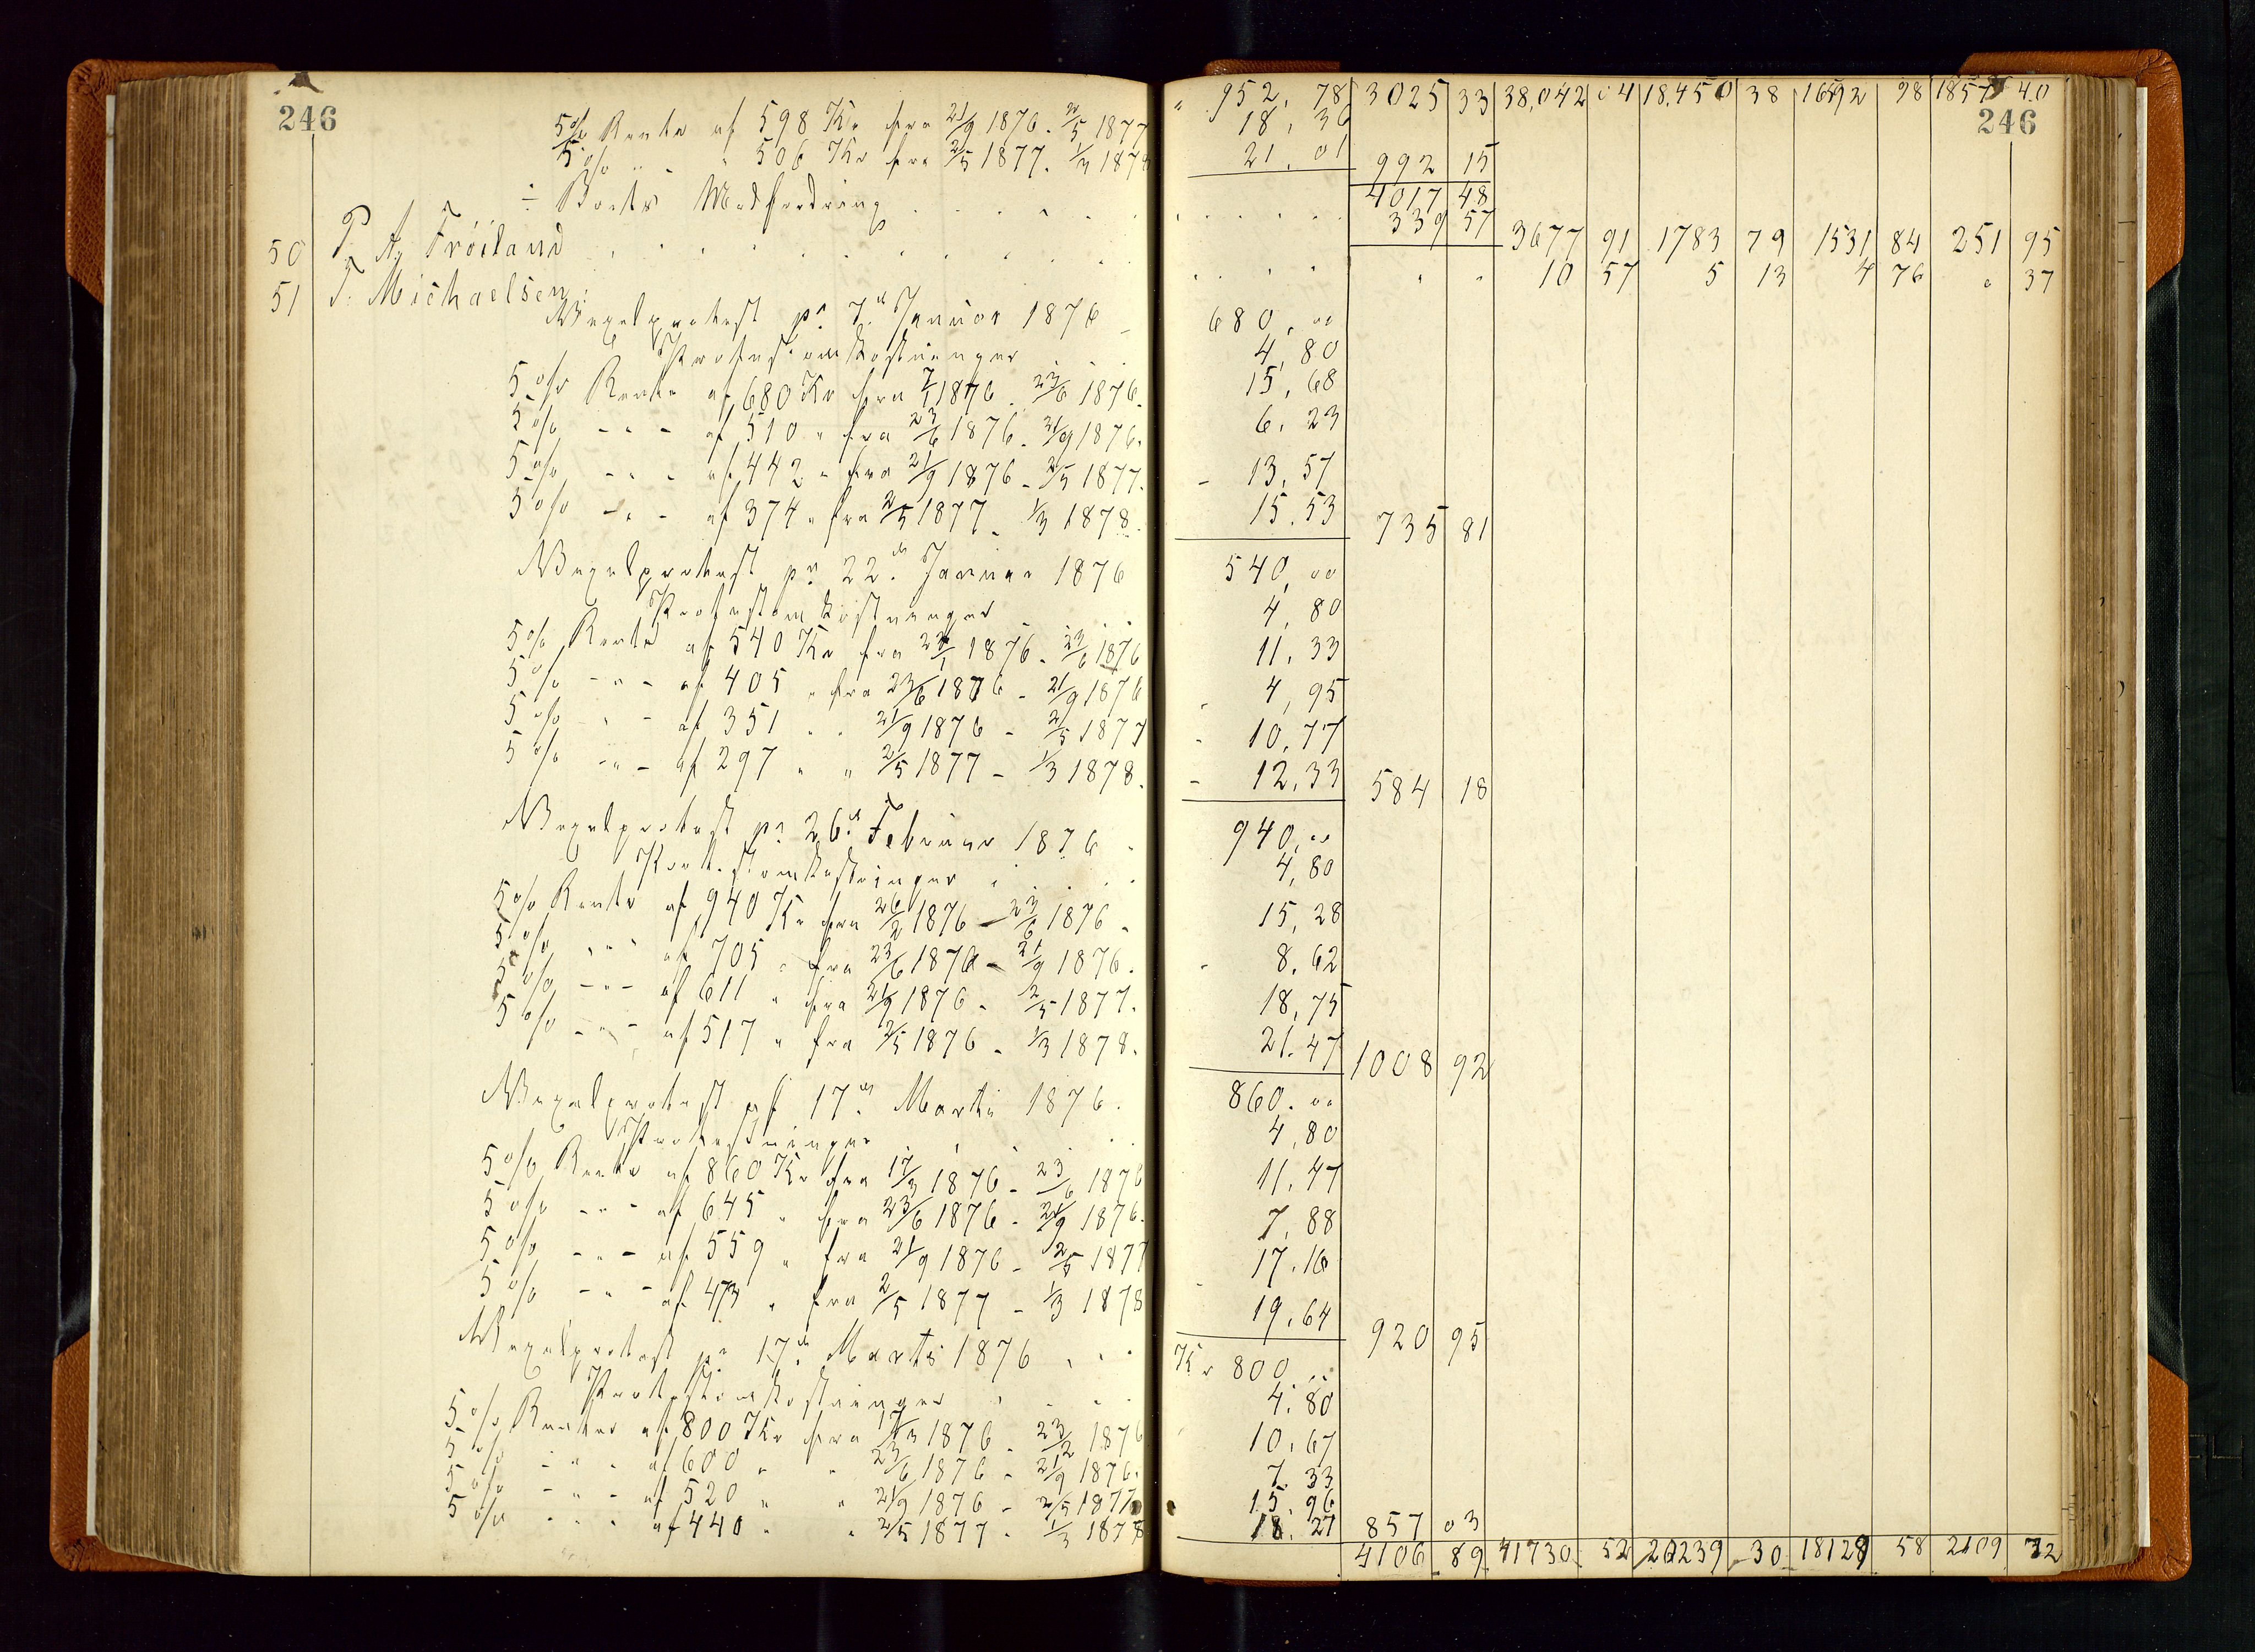 246
" 952, 78 3025 33 38,042 04 18,450 38 16592 98 1857 40
246
5% Rente af 598 Kr fra 21/9 1876 - 2/5 1877 18, 36
5% " " 506 Kr fra 2/5 1877 - 1/3 1878 21, 01 992 15
4017 48
÷ Boets Modfordring 339 57 3677 91 1783 79 1531 84 251 95
50 P. A. Tröiland " " 10 57 5 13 4 76 " 37
51 T. Michaelsen:
Vexelprotest pr 7de Januar 1876 680, 00
Protestomkostninger 4, 80
5% Rente af 680 Kr fra 7/1 1876 - 23/6 1876. 15, 68
5% - " - af 510 " fra 23/6 1876 - 21/9 1876. 6, 23
5% - " - af 442 " fra 21/9 1876 - 2/5 1877. 13, 57
5% - " - af 374 " fra 2/5 1877 - 1/3 1878. 15, 53 735 81
Vexelprotest pr 22de Januar 1876 540, 00
Protestomkostninger 4, 80
5% Rente af 540 Kr fra 22/1 1876 - 23/6 1876 11, 33
5% - " - af 405 " fra 23/6 1876 - 21/9 1876 4, 95
5% " - af 351 " " 21/9 1876 - 2/5 1877 10, 77
5% - " - af 297 " " 2/5 1877 - 1/3 1878. 12, 33 584 18
Vexelprotest pr 26de Februar 1876 940, 00
Protestomkostninger 4, 80
5% Rente af 940 Kr fra 26/2 1876 - 23/6 1876 15, 28
5% " " af 705 " fra 23/6 1876 - 21/9 1876. 8, 62
5% - " - af 611 " fra 21/9 1876 - 2/5 1877. 18, 75
5% - " - af 517 " fra 2/5 1876 - 1/3 1878. 21. 47 1008 92
Vexelprotest pr 17de Marts 1876. 860. 00
Protestninger 4, 80
5% Rente af 860 Kr fra 17/3 1876 - 23/6 1876 11. 47
5% - " - af 645 " fra 23/6 1876 - 21/9 1876. 7, 88
5% - " - af 559 " fra 21/9 1876 - 2/5 1877 17. 16
5% - " - af 473 " fra 2/5 1877 - 1/3 1878 19. 64 920 95
Vexelprotest pr 17de Marts 1876 Kr 800, 00
Protestomkostninger 4. 80
5% Renter af 800 Kr fra 17/3 1876 - 23/12 1876 10, 67
5% - " - af 600 " " 23/6 1876 - 21/9 1876. 7. 33
5% - " - af 520 " " 21/9 1876 - 2/5 1877 15. 96
5% " " " af 440 " " 2/5 1877 - 1/3 1878 18. 27 857 03
4106 89 41730 52 20239 30 18129 58 2109 72